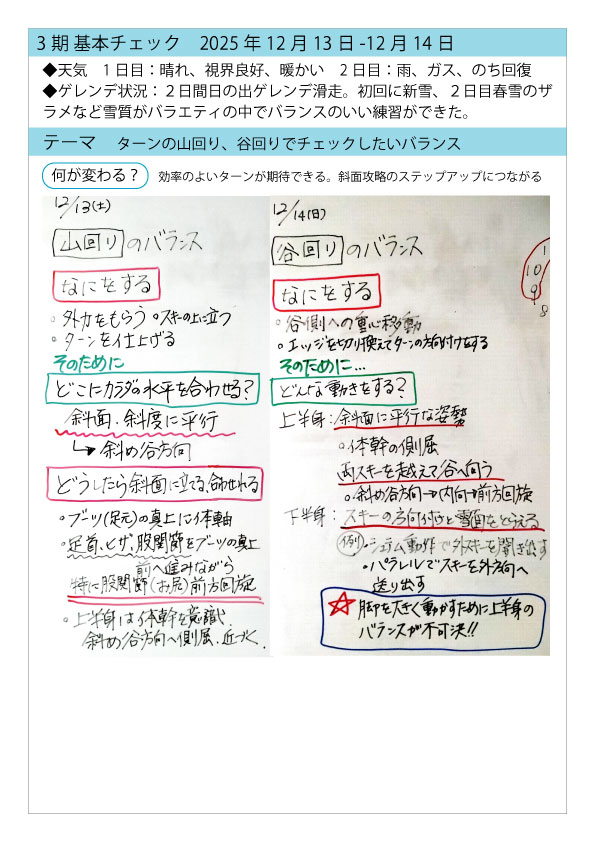 3期 基本チェック　2025年12月13日-12月14日
◆天気　1日目：晴れ、視界良好、暖かい　2日目：雨、ガス、のち回復
◆ゲレンデ状況：２日間日の出ゲレンデ滑走。初回に新雪、２日目春雪のザ
ラメなど雪質がバラエティの中でバランスのいい練習ができた。
テーマ　ターンの山回り、谷回りでチェックしたいバランス
何が変わる？　効率のよいターンが期待できる。斜面攻略のステップアップにつながる
12/13(土)
山回りのバランス
なにをする
○外力をもらう ○スキーの上に立つ
○ターンを仕上げる
そのために
どこにカラダの水平を合わせる?
斜面、斜度に平行
↳斜め谷方向
どうしたら斜面に立てる、合わせれる
○ブーツ(足元)の真上に体軸
○足首、ヒザ、股関節をブーツの真上
前へ進みながら
特に股関節(お尻)前方回旋
○上半身は体幹を意識
斜め谷方向へ側屈、近づく
12/14(日)
谷回りのバランス
1
10
9
8
なにをする
○谷側への重心移動
○エッジを切り換えてターンの方向付けをする
そのために…
どんな動きをする?
上半身：斜面に平行な姿勢
○体幹の側屈
両スキーを越えて谷へ向う
○斜め谷方向→内向→前方回旋
下半身：スキーの方向付けと雪面をとらえる
(例)○シュテム動作で外スキーを開き出す
○パラレルでスキーを外方向へ
送り出す
☆脚を大きく動かすために上半身の
バランスが不可決!!